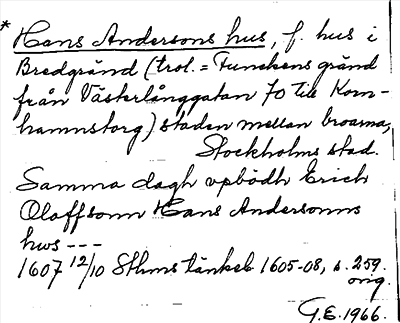 * Hans Andersons hus, f. hus i
Bredgränd (trol. = Funckens gränd
från Västerlånggatan 70 till Korn-
hamnstorg) staden mellan broarna,
Stockholms stad.
Samma dagh vpbödh Erich
Olaffsonn Hans Andersonns
hws - - -
1607 12/10 Sthms tänkeb 1605-08, s. 259.
orig.
G.E. 1966.